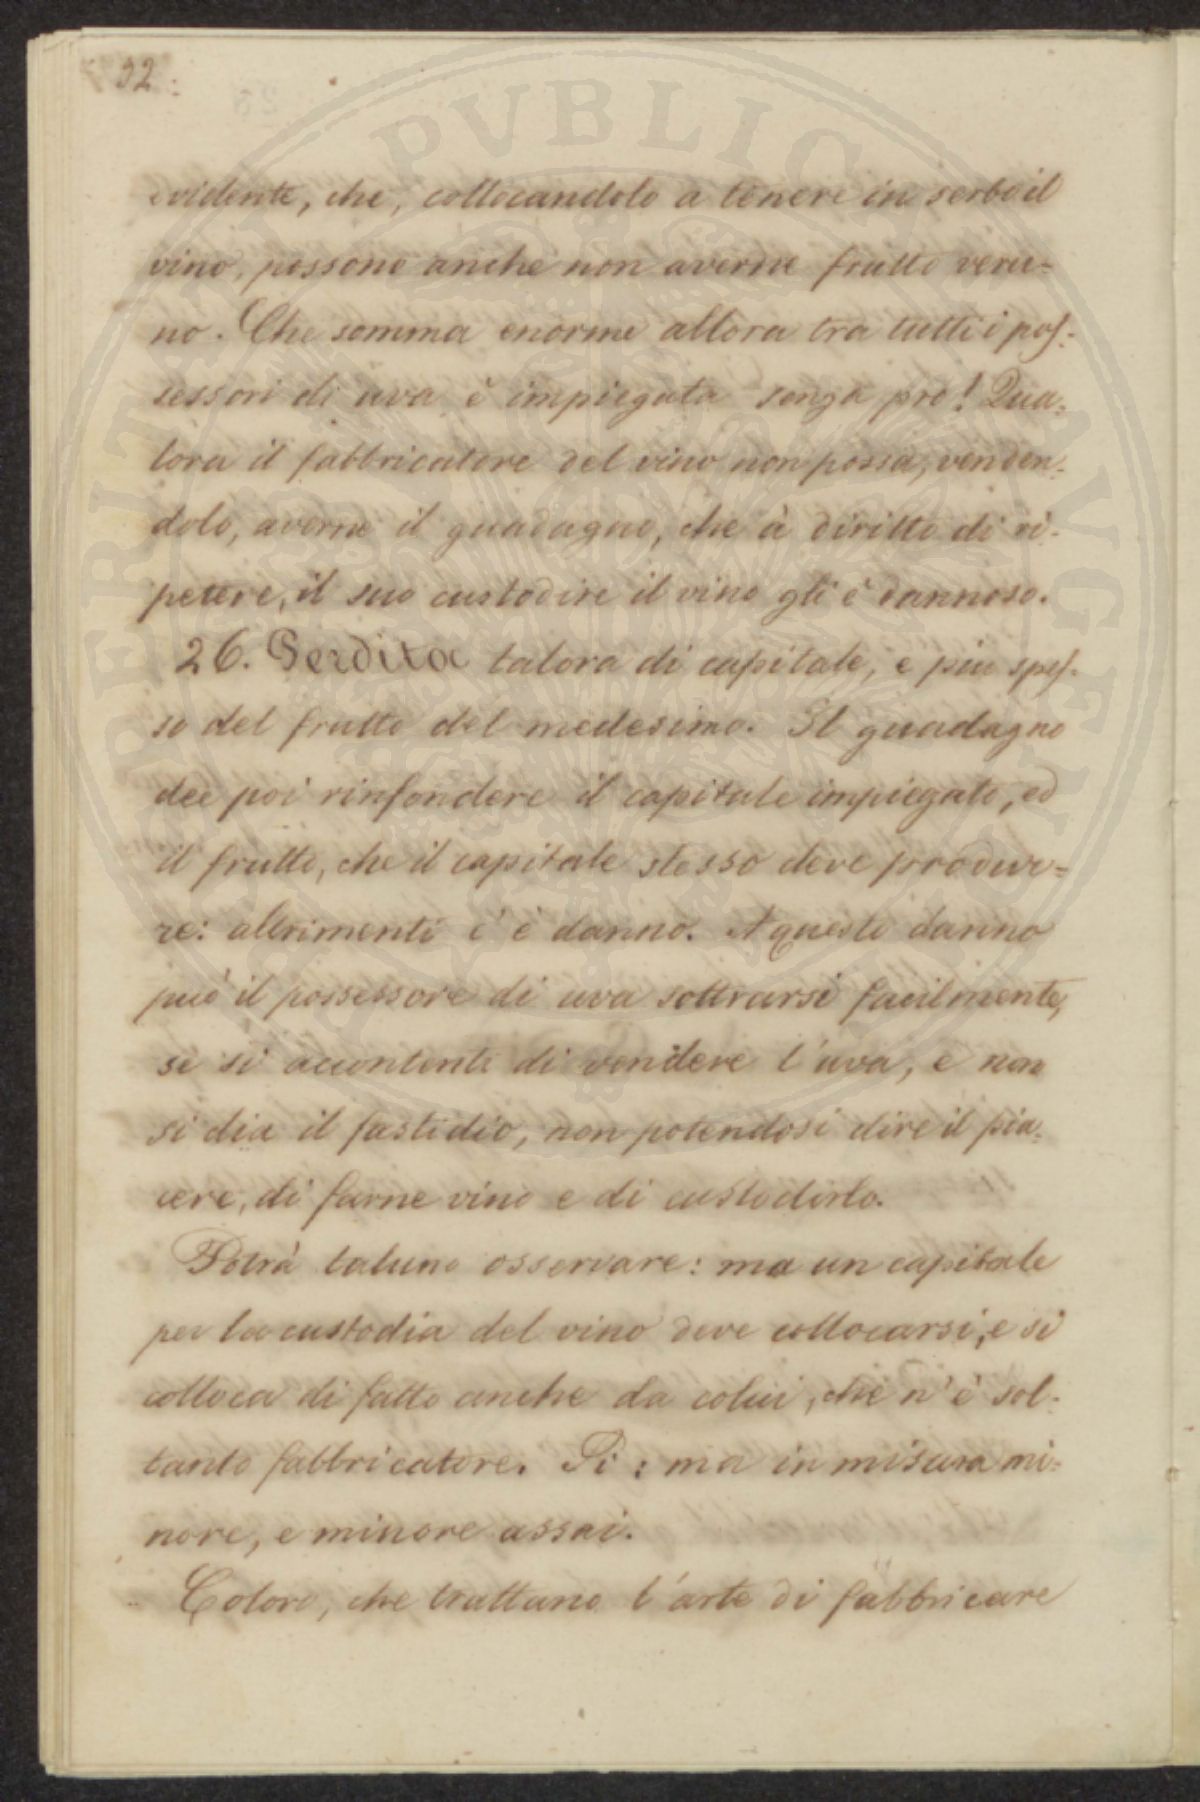 32
evidente, che, collocandolo a tenere in serbo il
vino, possono anche non averne frutto veru=
no. Che somma enorme allora tra tutti i pos=
sessori di uva è impiegata senza pro! Qua=
lora il fabbricatore del vino non possa, venden=
dolo, averne il guadagno, che à diritto di ri=
petere, il suo custodire il vino gli è dannoso.
26. Perdita talora di capitale, e piu spes=
so del frutto del medesimo. Il guadagno
dee poi rinfondere il capitale impiegato, ed
il frutto, che il capitale stesso deve produr=
re: altrimenti c'è danno. A questo danno
può il possessore di uva sottrarsi facilmente,
se si accontenti di vendere l'uva, e non
si dia il fastidio, non potendosi dire il pia=
cere, di farne vino e di custodirlo.
Potrà taluno osservare: ma un capitale
per la custodia del vino deve collocarsi, e si
colloca di fatto anche da colui, che n'è sol=
tanto fabbricatore. Si: ma in misura mi=
nore, e minore assai.
Coloro, che trattano l'arte di fabbricare
PERITATI PVBLICAE AVGENDAE